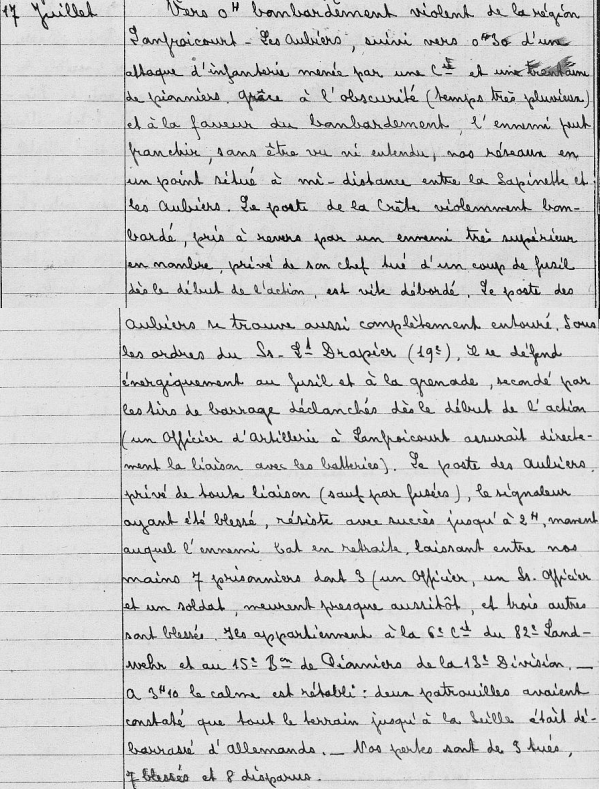 17 Juillet Vers 0H bombardement violent de la région
Lanfroicourt - Les Aubiers, suivi vers 0H30 d'une
attaque d'infanterie menée par une Cie et une trentaine
de pionniers. Grâce à l'obscurité (temps très pluvieux)
et à la faveur du bombardement, l'ennemi peut
franchir, sans être vu ni entendu, nos réseaux en
un point situé à mi-distance entre la Sapinette et
les Aubiers. Le poste de la Crête violemment bom-
bardé, pris à revers par un ennemi très supérieur
en nombre, privé de son chef tué d'un coup de fusil
dès le début de l'action, est vite débordé. Le poste des
Aubiers se trouve aussi complètement entouré. Sous
les ordres du Ss-Lt Drapier (19e), il se défend
énergiquement au fusil et à la grenade, secondé par
les tirs de barrage déclanchés dès le début de l'action
(un Officier d'Artillerie à Lanfroicourt assurait directe-
ment la liaison avec les batteries). Le poste des Aubiers,
privé de toute liaison (sauf par fusées), le signaleur
ayant été blessé, résiste avec succès jusqu'à 2H, moment
auquel l'ennemi bat en retraite, laissant entre nos
mains 7 prisonniers dont 3 (un Officier, un Ss. Officier
et un soldat, meurent presque aussitôt, et trois autres
sont blessés. Ils appartiennent à la 6e Cie du 82e Land-
wehr et au 15e Bon de Pionniers de la 13e Division. _
A 3H10 le calme est rétabli : deux patrouilles avaient
constaté que tout le terrain jusqu'à la Seille était dé-
barrassé d'Allemands. _ Nos pertes sont de 3 tués,
7 blessés et 8 disparus.